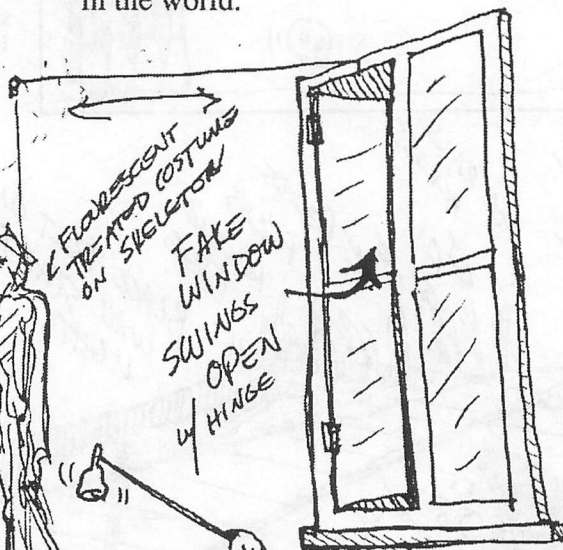 in the world.
FLOURESCENT
TREATED COSTUME
ON SKELETON
FAKE
WINDOW
SWINGS
OPEN
W/ HINGE